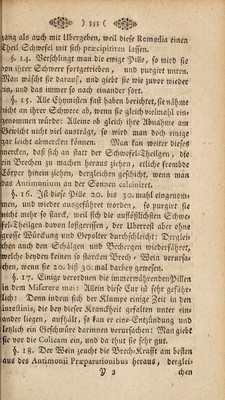 ( 353 )
zang als auch mit Übergeben, weil diese Remedia einen
Theil Schwefel mit sich præcipitiren lassen.
§. 14. Verschlingt man die ewige Pille, so wird sie
von ihrer Schwere fortgetrieben, und purgirt unten.
Man wäscht sie darauf, und giebt sie wie zuvor wieder
ein, und das immer so nach einander fort.
§. 15. Alle Chymisten fast haben berichtet, sie nähme
nicht an ihrer Schwere ab, wenn sie gleich vielmahl ein-
genommen würde: Alleine ob gleich ihre Abnahme am
Gewicht nicht viel austrägt, so wird man doch einige
gar leicht abmercken können. Man kan weiter dieses
mercken, daß sich an statt der Schwefel-Theilgen, die
ein Brechen zu machen heraus ziehen, etliche frembde
Cörper hinein ziehen, dergleichen geschicht, wenn man
das Antimonium an der Sonnen calciniret.
§. 16. Ist diese Pille 20. biß 30.mahl eingenom-
men, und wieder ausgeführet worden, so purgirt sie
nicht mehr so starck, weil sich die auflößlichsten Schwe-
fel-Theilgen davon loßgerissen, der Uberrest aber ohne
grosse Würckung und Gepolter durchschleicht: Derglei-
chen auch den Schälgen und Bechergen wiederfährt,
welche beyden keinen so starcken Brech-Wein verursa-
chen, wenn sie 20. biß 30.mal darbey gewesen.
§. 17. Einige verordnen die immerwährenden Pillen
in dem Miserere mei: Allein diese Cur ist sehr gefähr-
lich: Denn indem sich der Klumpe einige Zeit in den
intestinis, die bey dieser Kranckheit gefalten unter ein-
ander liegen, aufhält, so kan er eine Entzündung und
letzlich ein Geschwüre darinnen verursachen: Man giebt
sie vor die Colicam ein, und da thut sie sehr gut.
§. 18. Der Wein zeucht die Brech-Krafft am besten
aus des Antimonii Præparationibus heraus, derglei-
chen